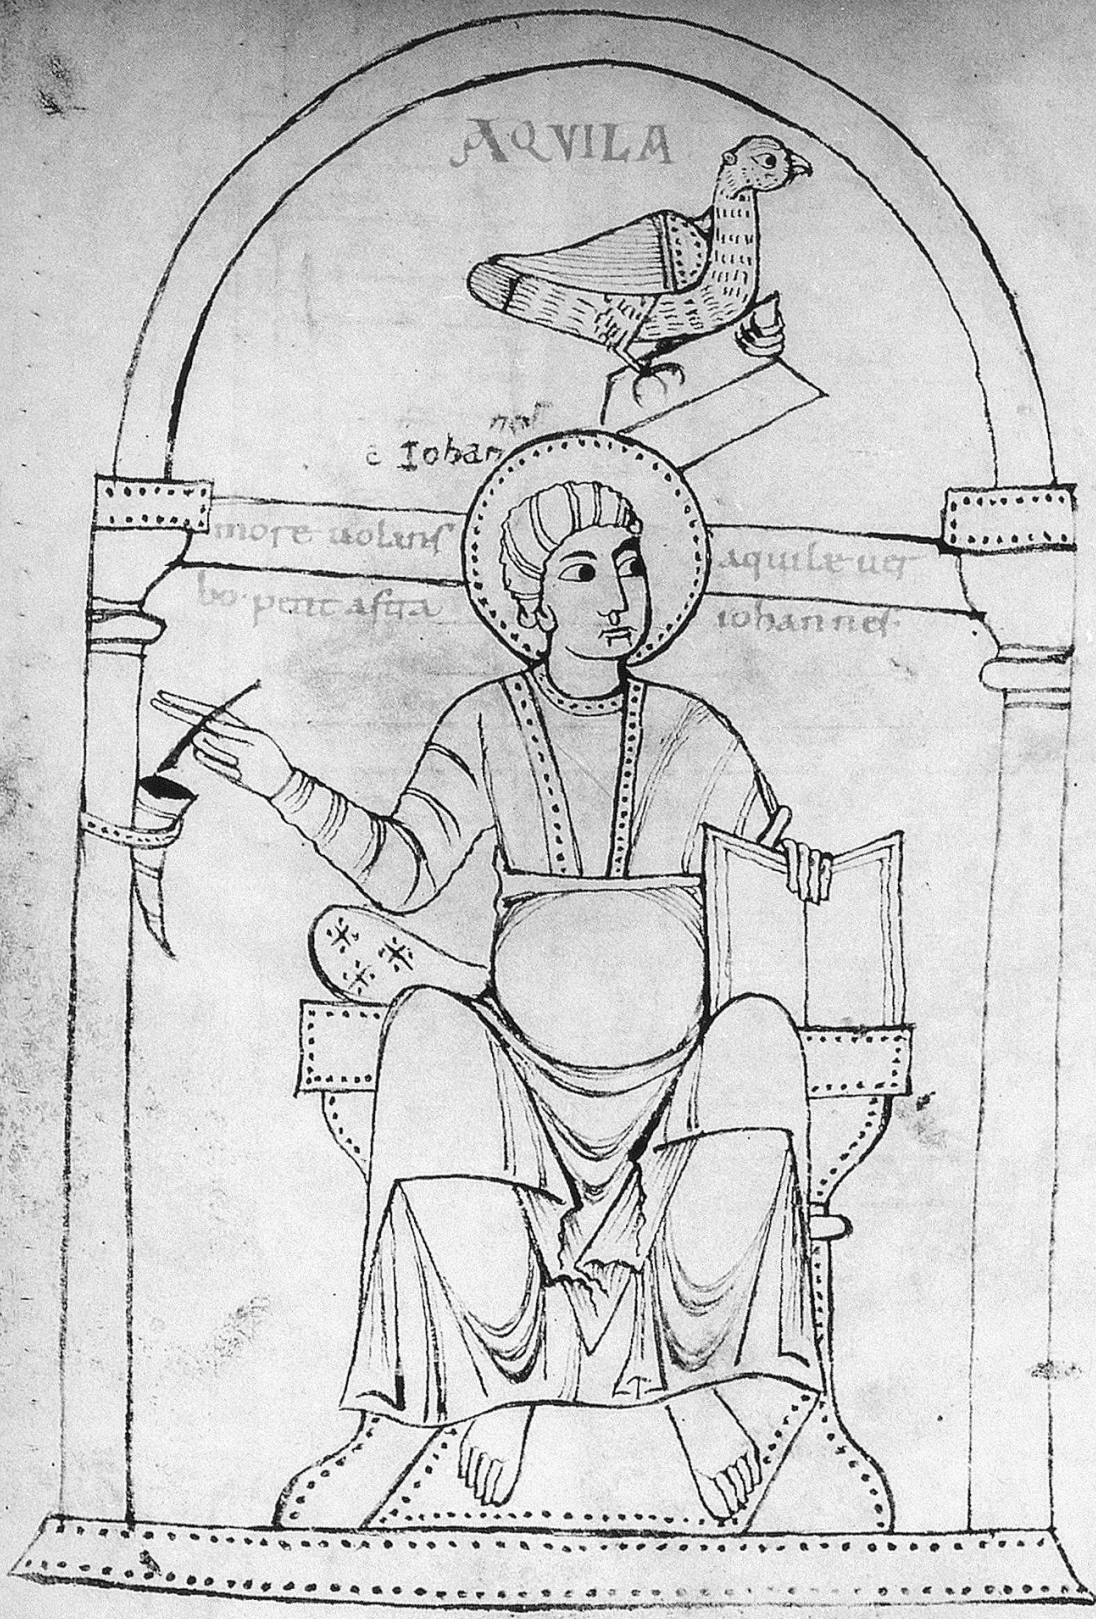 AQVILA
Iohan
more uolans aquilæ uer
bo petit astra iohannes